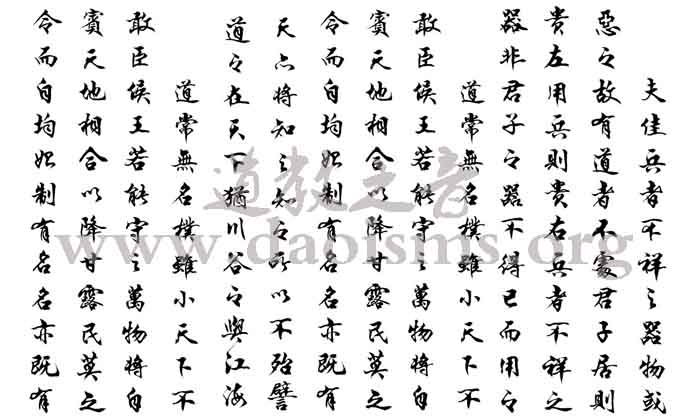 夫佳兵者不祥之器物或
惡之故有道者不處君子居則
貴左用兵則貴右兵者不祥之
器非君子之器不得已而用之
道常無名樸雖小天下不
敢臣侯王若能守之萬物將自
賓天地相合以降甘露民莫之
令而自均始制有名名亦既有
天亦將知之知之所以不殆譬
道之在天下猶川谷之與江海
道常無名樸雖小天下不
敢臣侯王若能守之萬物將自
賓天地相合以降甘露民莫之
令而自均始制有名名亦既有
道教之音
www.daoisms.org